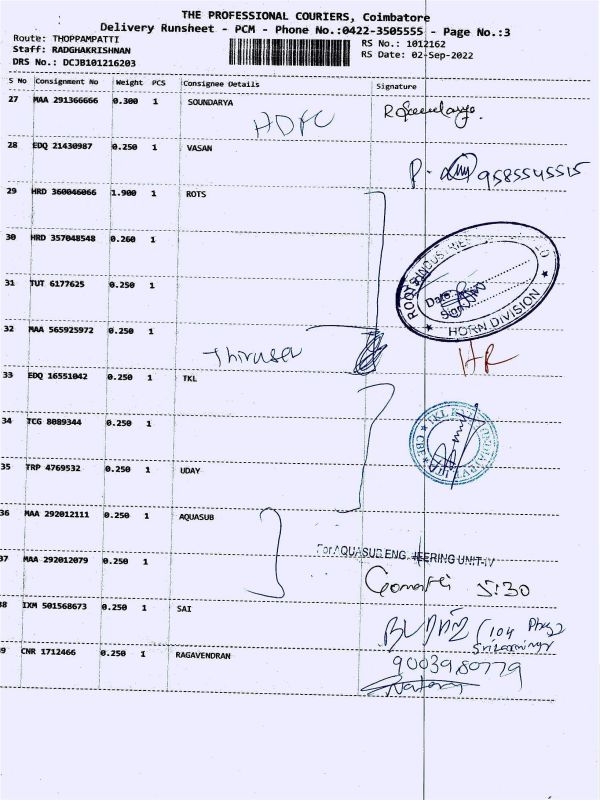 THE PROFESSIONAL COURIERS, Coimbatore
Delivery Runsheet - PCM - Phone No.:0422-3505555 - Page No.:3
Route: THOPPAMPATTI
Staff: RADGHAKRISHNAN
DRS No.: DCJB101216203
RS No.: 1012162
RS Date: 02-Sep-2022
S No Consignment No Weight PCS Consignee Details Signature
27 MAA 291366666 0.300 1 SOUNDARYA
HDFC
28 EDQ 21430987 0.250 1 VASAN
9585545515
29 HRD 360046066 1.900 1 ROTS
30 HRD 357048548 0.260 1
31 TUT 6177625 0.250 1
ROOTS INDUSTRIES
Date:
Sign
HORN DIVISION
32 MAA 565925972 0.250 1
HR
33 EDQ 16551042 0.250 1 TKL
34 TCG 8089344 0.250 1
TKL
CBE
35 TRP 4769532 0.250 1 UDAY
36 MAA 292012111 0.250 1 AQUASUB
For AQUASUB ENGINEERING UNIT-IV
37 MAA 292012079 0.250 1
5:30
38 IXM 501568673 0.250 1 SAI
104
39 CNR 1712466 0.250 1 RAGAVENDRAN
9003980779